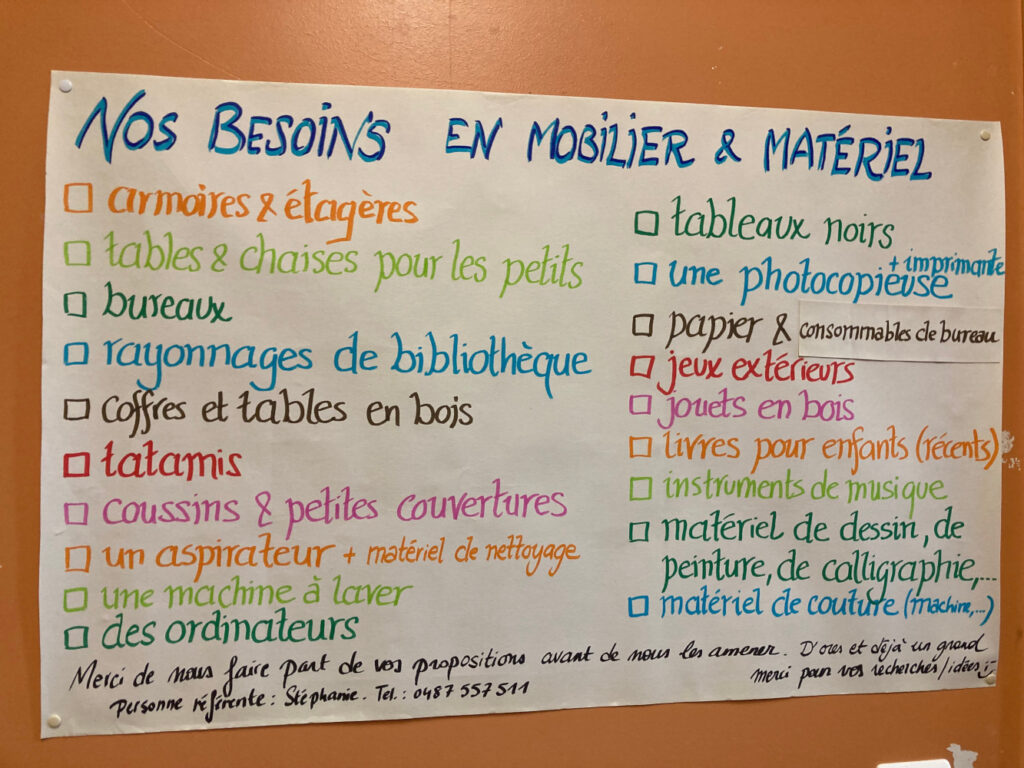 Nos Besoins en mobilier & matériel
armoires & étagères
tables & chaises pour les petits
bureaux
rayonnages de bibliothèque
coffres et tables en bois
tatamis
coussins & petites couvertures
un aspirateur + matériel de nettoyage
une machine à laver
des ordinateurs
tableaux noirs
une photocopieuse + imprimante
papier & consommables de bureau
jeux extérieurs
jouets en bois
livres pour enfants (récents)
instruments de musique
matériel de dessin, de
peinture, de calligraphie,...
matériel de couture (machine,...)
Merci de nous faire part de vos propositions avant de nous les amener. D'ores et déjà un grand
merci pour vos recherches/idées :-)
Personne référente : Stéphanie. Tel. : 0487 557 511